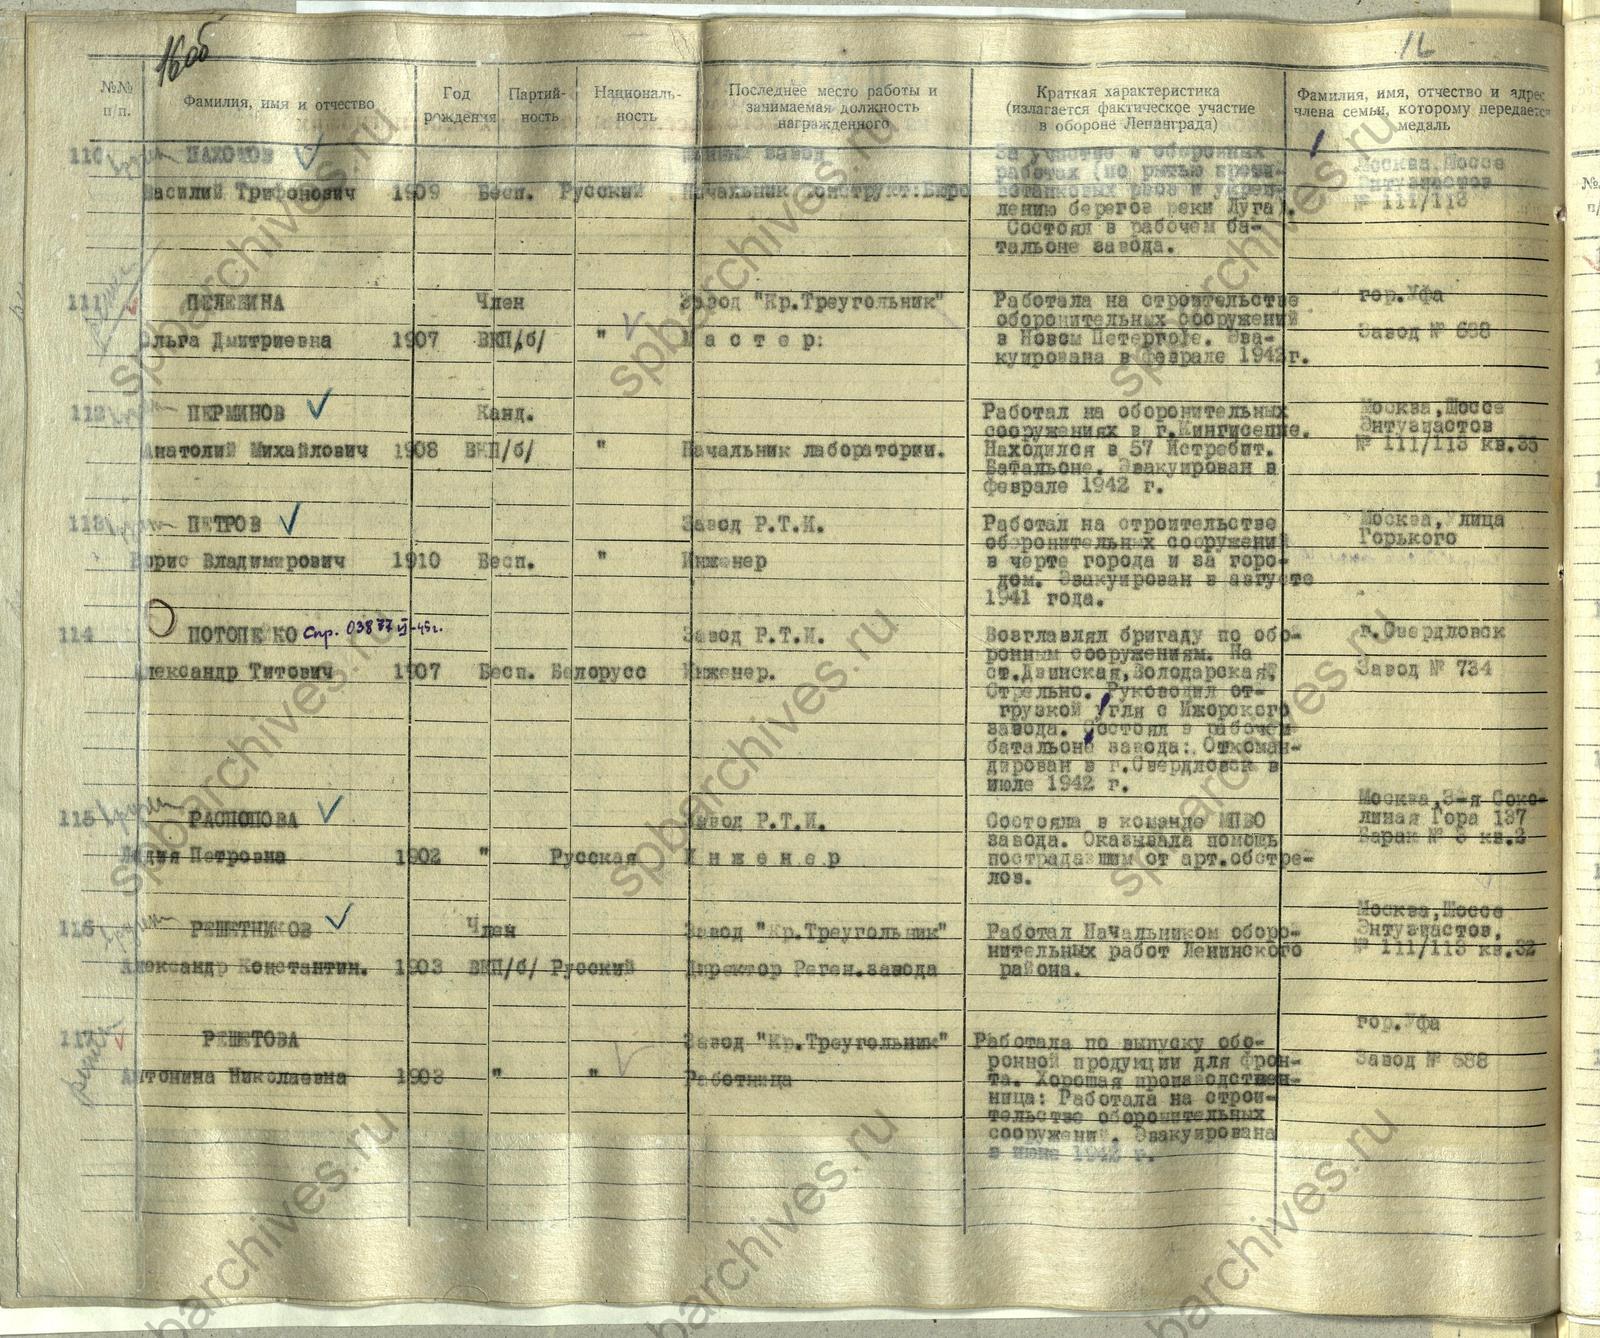 16об
№№ п/п.
Фамилия, имя и отчество
Год рождения
Партий-ность
Националь-ность
Последнее место работы и занимаемая должность награжденного
Краткая характеристика (излагается фактическое участие в обороне Ленинграда)
Фамилия, имя, отчество и адрес члена семьи, которому передается медаль
110 ПАХОМОВ
Василий Трифонович 1909 Бесп. Русский
завод
Начальник Конструкт:Бюро
За участие в оборонных
работах (по рытью проти-
вотанковых рвов и укреп-
лению берегов реки Луга).
Состоял в рабочем ба-
тальоне завода.
Москва, Шоссе
Энтузиастов
№ 111/113
111 ПЕЛЕВИНА Член
Ольга Дмитриевна 1907 ВКП/б/ "
Завод "Кр.Треугольник"
М а с т е р:
Работала на строительстве
оборонительных сооружений
в Новом Петергофе. Эва-
куирована в феврале 1942г.
гор.Уфа
Завод № 688
112 ПЕРМИНОВ Канд.
Анатолий Михайлович 1908 ВКП/б/ "
Начальник лаборатории.
Работал на оборонительных
сооружениях в г.Кингисеппе.
Находился в 57 Истребит.
Батальоне. Эвакуирован в
феврале 1942 г.
Москва, Шоссе
Энтузиастов
№ 111/113 кв.35
113 ПЕТРОВ
Борис Владимирович 1910 Бесп. "
Завод Р.Т.И.
Инженер
Работал на строительстве
оборонительных сооружений
в черте города и за горо-
дом. Эвакуирован в августе
1941 года.
Москва, Улица
Горького
114 ПОТОПЕ КО Спр. 03877
Александр Титович 1907 Бесп. Белорусс
Завод Р.Т.И.
Инженер.
Возглавлял бригаду по обо-
ронным сооружениям. На
ст.Двинская,Володарская,
Стрельно. Руководил от-
грузкой угля с Ижорского
завода. Состоял в рабочем
батальоне завода: Откоман-
дирован в г.Свердловск в
июле 1942 г.
г.Свердловск
Завод № 734
115 РАСПОПОВА
Лидия Петровна 1902 " Русская
Завод Р.Т.И.
И н ж е н е р
Состояла в команде МПВО
завода. Оказывала помощь
пострадавшим от арт.обстре-
лов.
Москва,3-я Соко-
линая Гора 137
Барак № 3 кв.2
116 РЕШЕТНИКОВ Член
Александр Константин. 1903 ВКП/б/ Русский
Завод "Кр.Треугольник"
Директор Реген.завода
Работал Начальником оборо-
нительных работ Ленинского
района.
Москва, Шоссе
Энтузиастов.
№ 111/113 кв.32
117 РЕШЕТОВА
Антонина Николаевна 1903 " "
Завод "Кр.Треугольник"
Работница
Работала по выпуску обо-
ронной продукции для фрон-
та. Хорошая производствен-
ница: Работала на строи-
тельстве оборонительных
сооружений. Эвакуирована
в июне 1942 г.
гор.Уфа
Завод № 688
spbarchives.ru